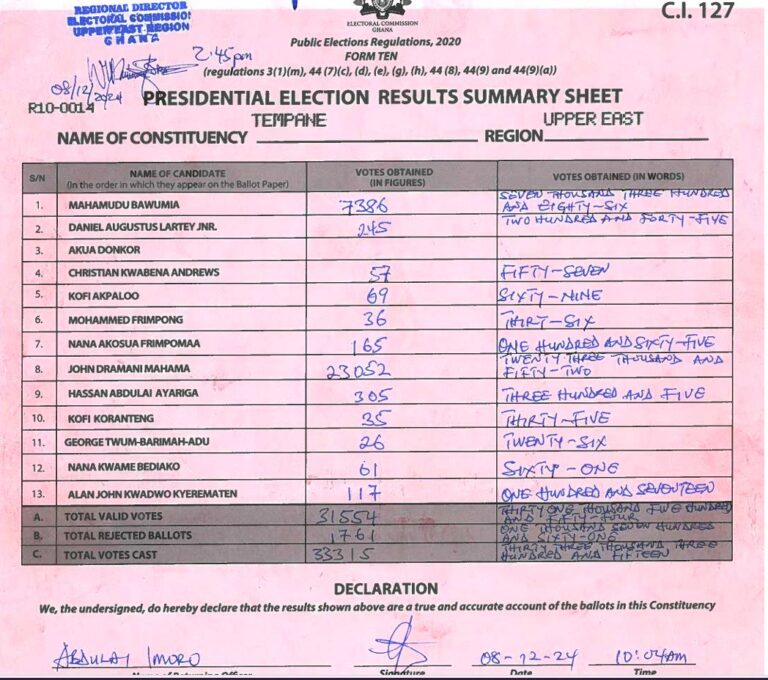 REGIONAL DIRECTOR
ELECTORAL COMMISSION
UPPER EAST REGION
GHANA
2:45pm
08/12/2024
R10-0014
C.I. 127
ELECTORAL COMMISSION
GHANA
Public Elections Regulations, 2020
FORM TEN
(regulations 3(1)(m), 44 (7)(c), (d), (e), (g), (h), 44 (8), 44(9) and 44(9)(a))
PRESIDENTIAL ELECTION RESULTS SUMMARY SHEET
NAME OF CONSTITUENCY TEMPANE REGION UPPER EAST
S/N NAME OF CANDIDATE (In the order in which they appear on the Ballot Paper) VOTES OBTAINED (IN FIGURES) VOTES OBTAINED (IN WORDS)
1. MAHAMUDU BAWUMIA 7386 SEVEN THOUSAND THREE HUNDRED AND EIGHTY-SIX
2. DANIEL AUGUSTUS LARTEY JNR. 245 TWO HUNDRED AND FORTY-FIVE
3. AKUA DONKOR
4. CHRISTIAN KWABENA ANDREWS 57 FIFTY-SEVEN
5. KOFI AKPALOO 69 SIXTY-NINE
6. MOHAMMED FRIMPONG 36 THIRT-SIX
7. NANA AKOSUA FRIMPOMAA 165 ONE HUNDRED AND SIXTY-FIVE
8. JOHN DRAMANI MAHAMA 23052 TWENTY THREE THOUSAND AND FIFTY-TWO
9. HASSAN ABDULAI AYARIGA 305 THREE HUNDRED AND FIVE
10. KOFI KORANTENG 35 THIRTY-FIVE
11. GEORGE TWUM-BARIMAH-ADU 26 TWENTY-SIX
12. NANA KWAME BEDIAKO 61 SIXTY-ONE
13. ALAN JOHN KWADWO KYEREMATEN 117 ONE HUNDRED AND SEVENTEEN
A. TOTAL VALID VOTES 31554 THIRTY ONE THOUSAND FIVE HUNDRED AND FIFTY FOUR
B. TOTAL REJECTED BALLOTS 1761 ONE THOUSAND SEVEN HUNDRED AND SIXTY-ONE
C. TOTAL VOTES CAST 33315 THIRTY THREE THOUSAND THREE HUNDRED AND FIFTEEN
DECLARATION
We, the undersigned, do hereby declare that the results shown above are a true and accurate account of the ballots in this Constituency
ABDULAI IMORO 08-12-24 10:04AM
Name of Returning Officer Signature Date Time